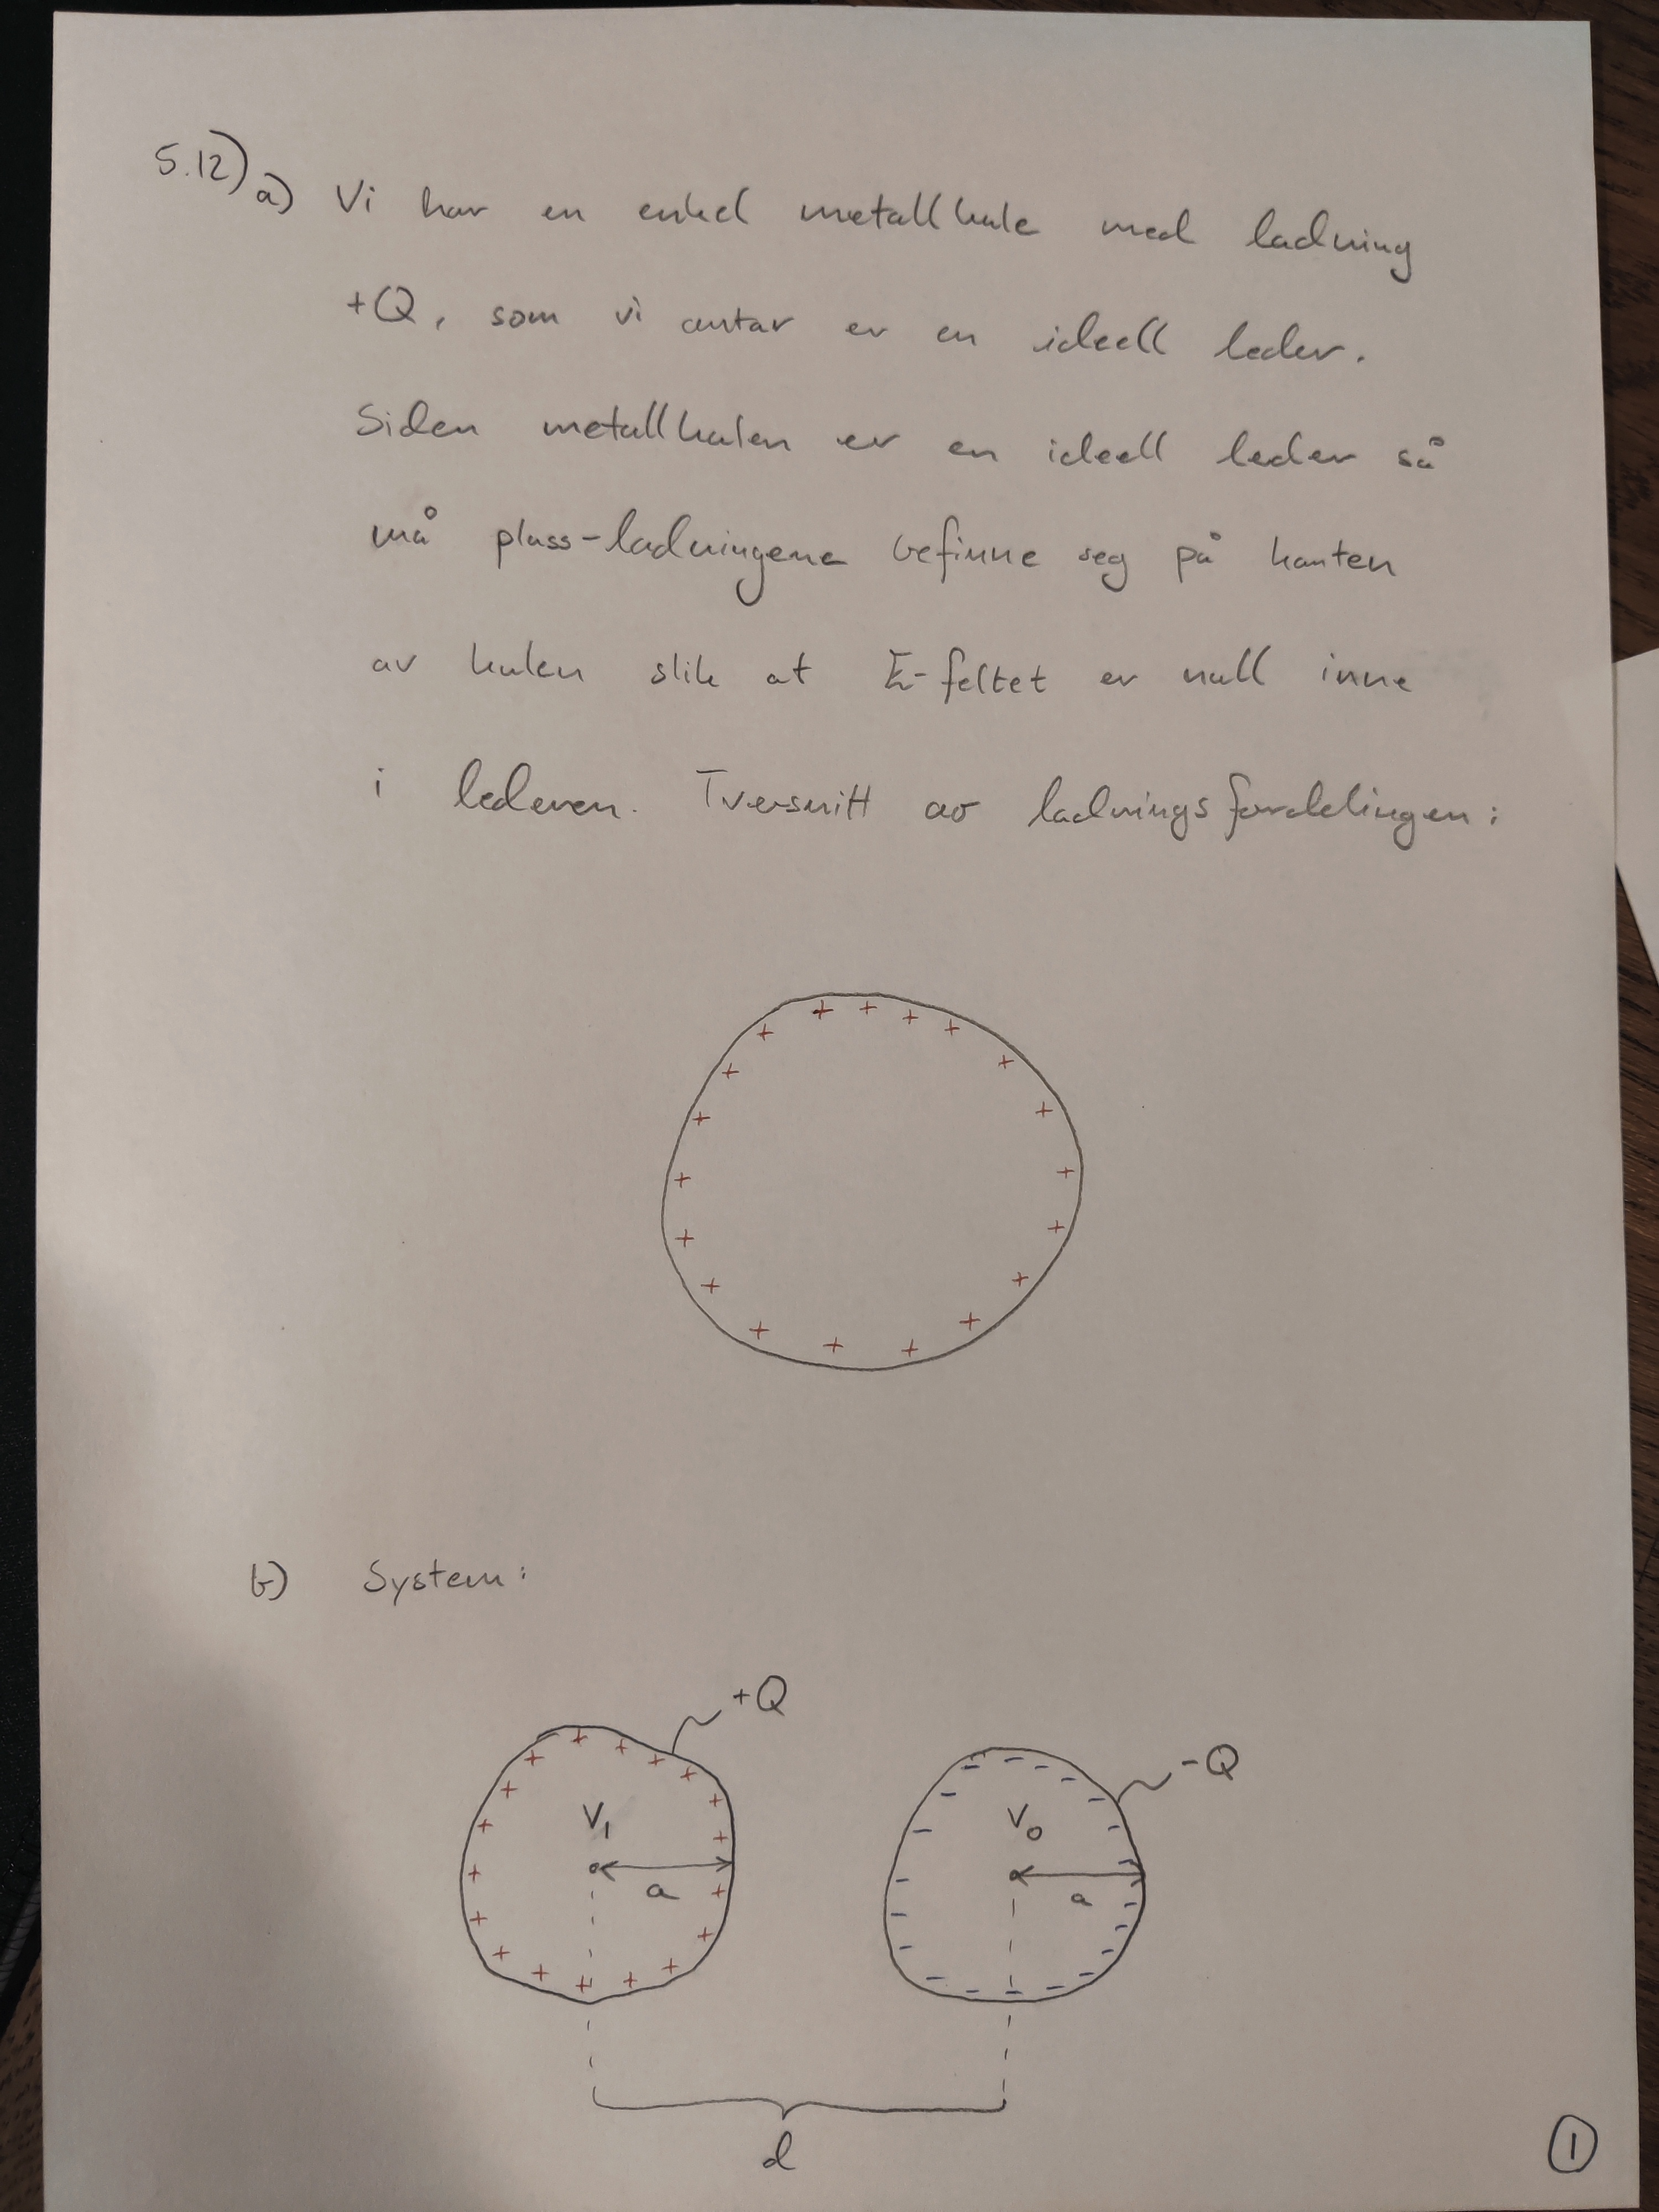 5.12) a) Vi har en enkel metallkule med ladning
+Q, som vi antar er en ideell leder.
Siden metallkulen er en ideell leder så
må pluss-ladningene befinne seg på kanten
av kulen slik at E-feltet er null inne
i lederen. Tversnitt av ladningsfordelingen:
+ + + + + + + + + + + + + + + + + + + +
b) System:
+Q
-Q
+ + + + + + + + + + + + + + + + + + + +
V₁
a
- - - - - - - - - - - - - - - - - - - - - -
V₀
a
d
1